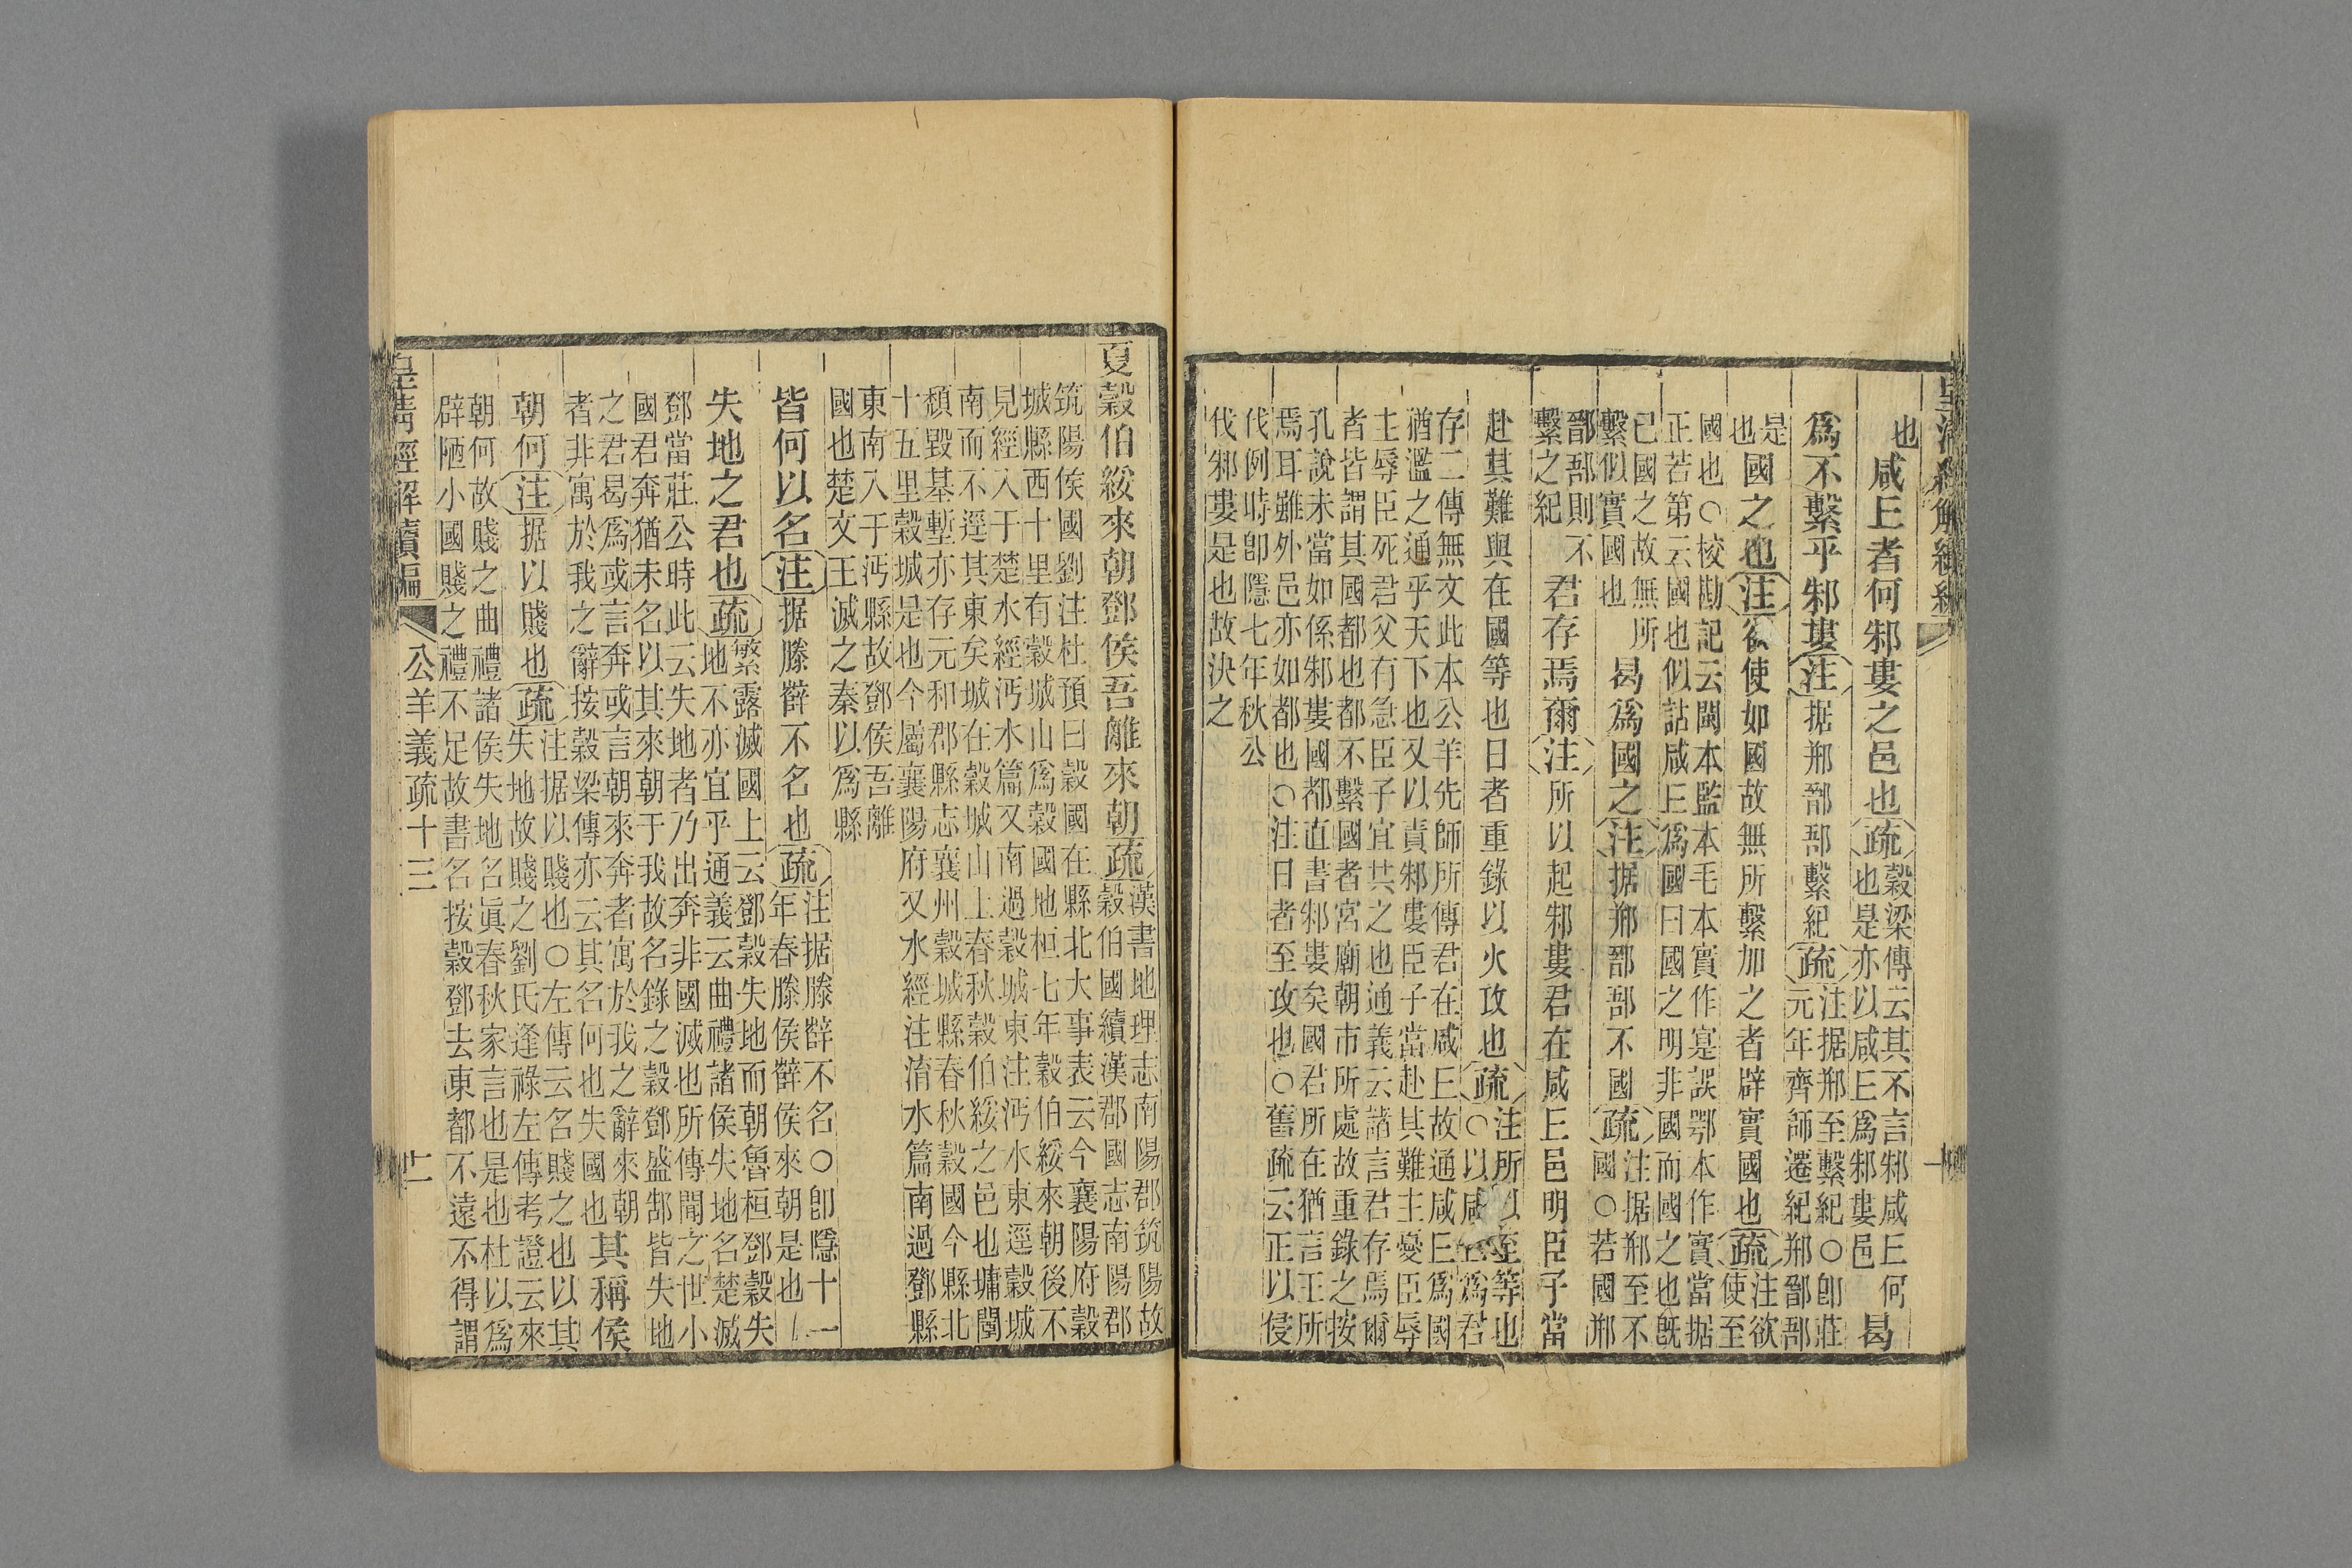 皇清經解續編
也咸𠀉者何邾婁之邑也疏
穀梁傳云其不言邾咸𠀉何
也是亦以咸𠀉爲邾婁邑
曷
爲不繫乎邾婁注据郱鄑郚繫紀疏
注据郱至繫紀○卽莊
元年齊師遷紀郱鄑郚
是
也
國之也注欲使如國故無所繫加之者辟實國也疏
注欲
使至
國也○校勘記云閩本監本毛本實作寔誤鄂本作實當据
正若第云國也似詁咸𠀉爲國曰國之明非國而國之也旣
已國之故無所
繫似實國也
曷爲國之注据郱鄑郚不國疏
注据郱至不
國○若國郱
鄑郚則不
繫之紀
君存焉爾注所以起邾婁君在咸𠀉邑明臣子當
赴其難與在國等也日者重錄以火攻也疏
注所以至等也
○以咸𠀉爲君
存二傳無文此本公羊先師所傳君在咸𠀉故通咸𠀉爲國
猶濫之通乎天下也又以責邾婁臣子當赴其難主憂臣辱
主辱臣死君父有急臣子宜共之也通義云諸言君存焉爾
者皆謂其國都也都不繫國者宮廟朝市所處故重錄之按
孔說未當如係邾婁國都直書邾婁矣國君所在猶言王所
焉耳雖外邑亦如都也○注日者至攻也○舊疏云正以侵
伐例時卽隱七年秋公
伐邾婁是也故決之
夏穀伯綏來朝鄧侯吾離來朝疏
漢書地理志南陽郡筑陽故
穀伯國續漢郡國志南陽郡
筑陽侯國劉注杜預曰穀國在縣北大事表云今襄陽府穀
城縣西十里有穀城山爲穀國地桓七年穀伯綏來朝後不
見經入于楚水經沔水篇又南過穀城東注沔水東逕穀城
南而不逕其東矣城在穀城山上春秋穀伯綏之邑也墉闉
頹毀基塹亦存元和郡縣志襄州穀城縣春秋穀國今縣北
十五里穀城是也今屬襄陽府又水經注淯水篇南過鄧縣
東南入于沔縣故鄧侯吾離
國也楚文王滅之秦以爲縣
皆何以名注据滕薛不名也疏
注据滕薛不名○卽隱十一
年春滕侯薛侯來朝是也
失地之君也疏
繁露滅國上云鄧穀失地而朝魯桓鄧穀失
地不亦宜乎通義云曲禮諸侯失地名楚滅
鄧當莊公時此云失地者乃出奔非國滅也所傳聞之世小
國君奔猶未名以其來朝于我故名錄之穀鄧盛郜皆失地
之君曷爲或言奔或言朝來奔者寓於我之辭來朝
者非寓於我之辭按穀梁傳亦云其名何也失國也
其稱侯
朝何注据以賤也疏
注据以賤也○左傳云名賤之也以其
失地故賤之劉氏逢祿左傳考證云來
朝何故賤之曲禮諸侯失地名眞春秋家言也是也杜以爲
辟陋小國賤之禮不足故書名按穀鄧去東都不遠不得謂
皇清經解續編 公羊義疏十三